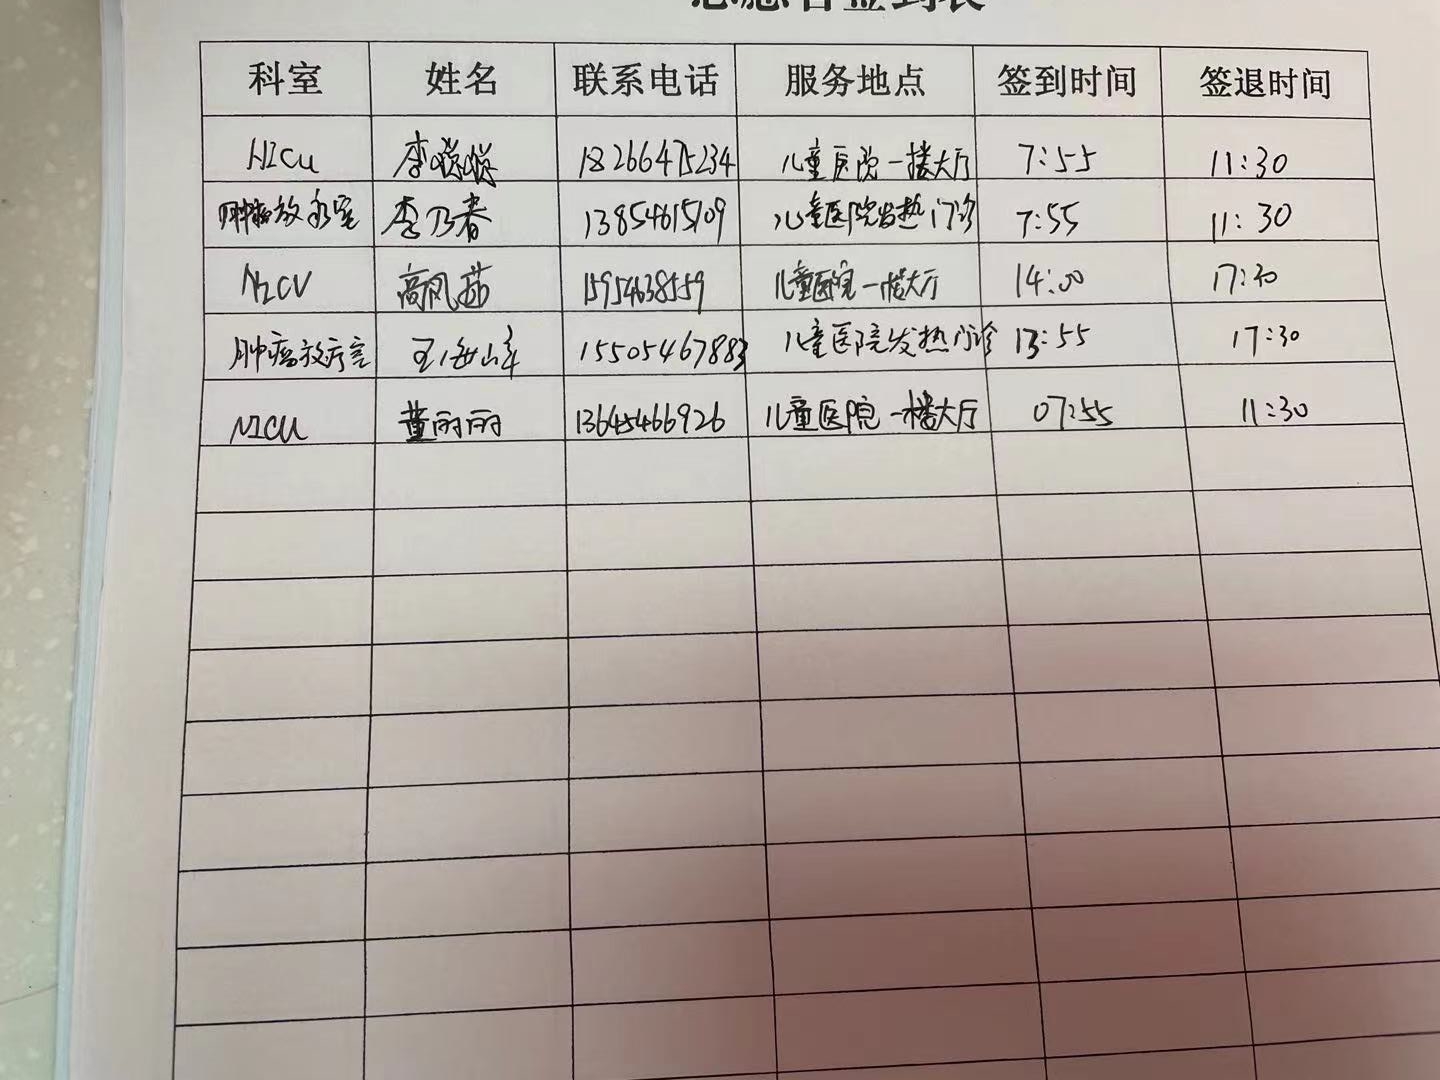 志愿者签到表
科室 姓名 联系电话 服务地点 签到时间 签退时间
NICU 李聪聪 18266475234 儿童医院一楼大厅 7:55 11:30
肿瘤放疗室 李乃春 13854615709 儿童医院发热门诊 7:55 11:30
NICU 高凤茹 15954638559 儿童医院一楼大厅 14:00 17:30
肿瘤放疗室 王海峰 15505467883 儿童医院发热门诊 13:55 17:30
NICU 董丽丽 13645466926 儿童医院一楼大厅 07:55 11:30